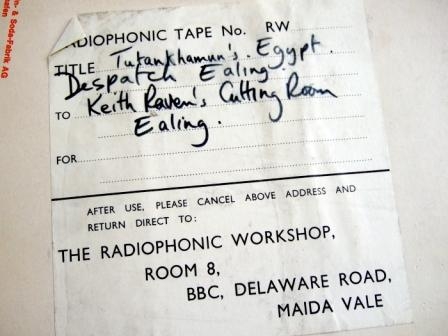 ADIOPHONIC TAPE No. RW
TITLE Tutankhamun's. Egypt.
Despatch Ealing
TO Keith Raven's Cutting Room
Ealing.
FOR
AFTER USE, PLEASE CANCEL ABOVE ADDRESS AND
RETURN DIRECT TO:
THE RADIOPHONIC WORKSHOP,
ROOM 8,
BBC, DELAWARE ROAD,
MAIDA VALE
- & Soda-Fabrik AG